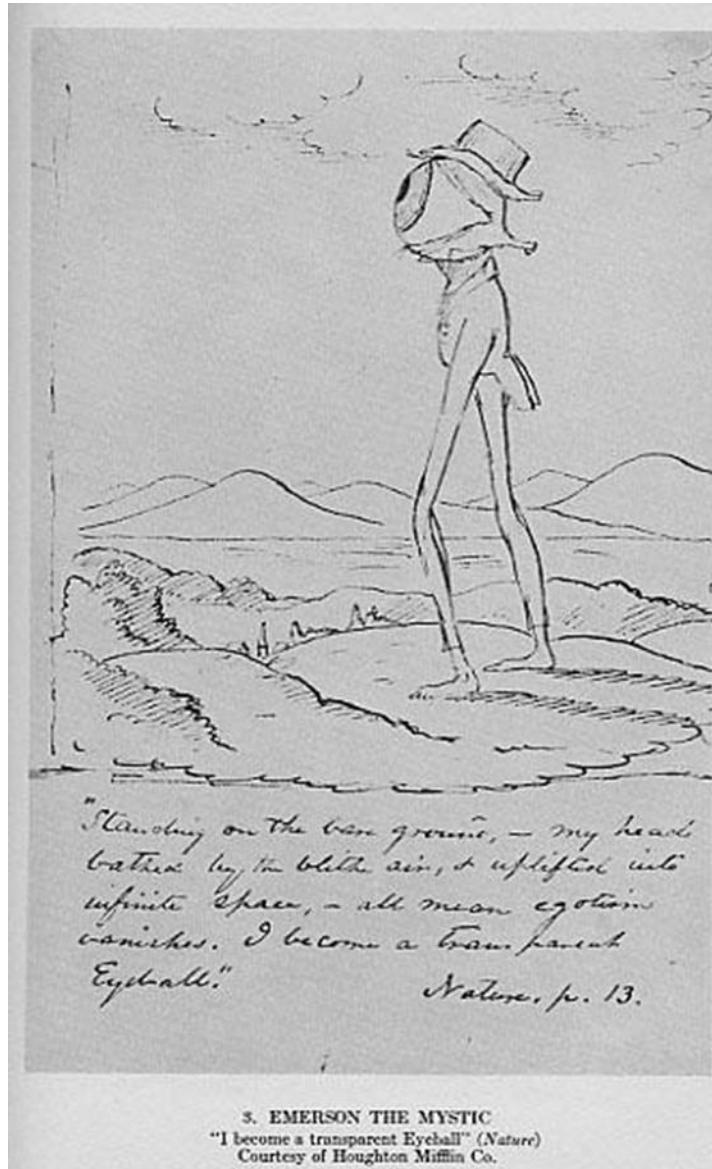 "Standing on the bare ground, – my head
bathed by the blithe air, & uplifted into
infinite space, – all mean egotism
vanishes. I become a transparent
Eyeball."
Nature. p. 13.
3. EMERSON THE MYSTIC
"I become a transparent Eyeball" (Nature)
Courtesy of Houghton Mifflin Co.